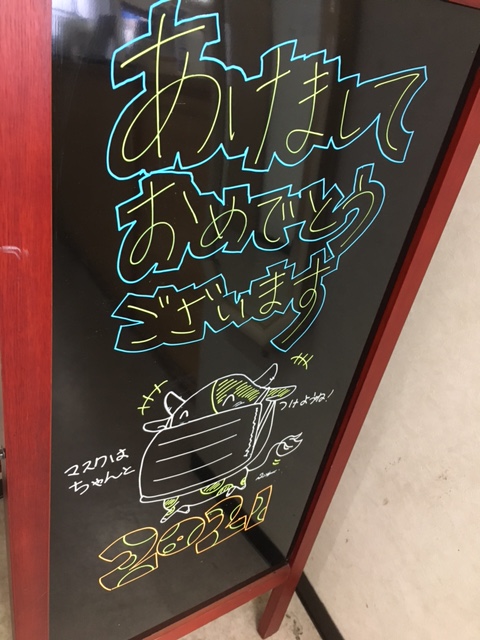 あけまして
おめでとう
ございます
マスクは
ちゃんと
つけようね!
2021